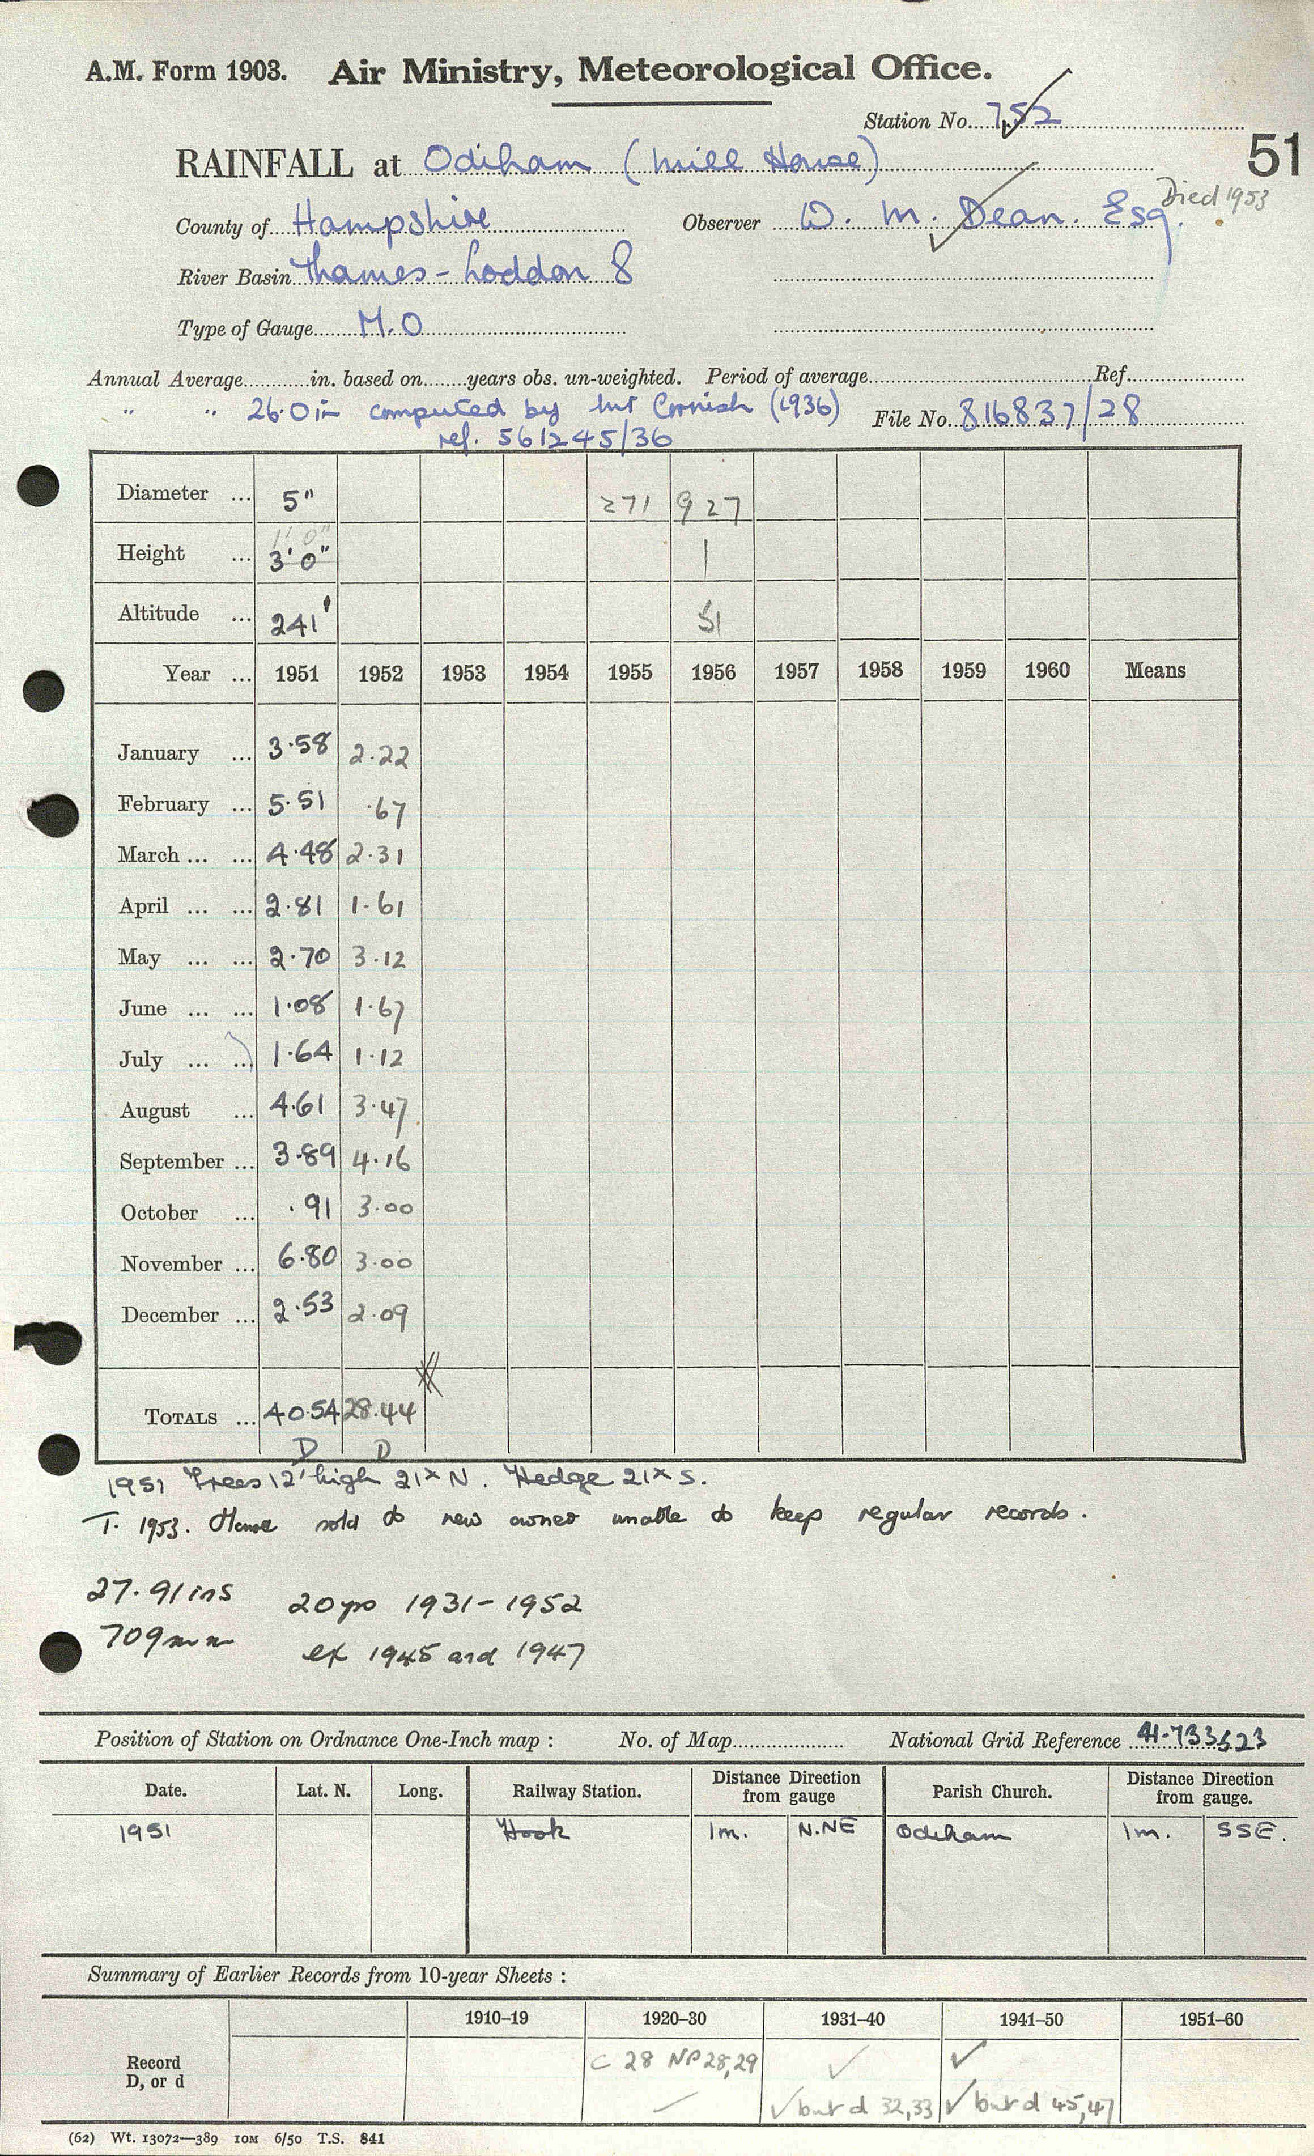 A.M. Form 1903. Air Ministry, Meteorological Office.
Station No. 752
51
RAINFALL at Odiham (Mill House)
Died 1953
County of Hampshire Observer W. M. Dean. Esq.
River Basin Thames - Loddon 8
Type of Gauge M.O
Annual Average in. based on years obs. un-weighted. Period of average Ref.
" " 26.0 in computed by Mr Cornish (1936) File No. 816837/28
ref. 561245/36
Diameter ... 5" 271 927
1'0"
Height ... 3'0" 1
Altitude ... 241' 51
Year ... 1951 1952 1953 1954 1955 1956 1957 1958 1959 1960 Means
January ... 3.58 2.22
February ... 5.51 .67
March ... ... 4.48 2.31
April ... ... 2.81 1.61
May ... ... 2.70 3.12
June ... ... 1.08 1.67
July ... ... 1.64 1.12
August ... 4.61 3.47
September ... 3.89 4.16
October ... .91 3.00
November ... 6.80 3.00
December ... 2.53 2.09
TOTALS ... 40.54 28.44
D D
1951 Trees 12' high 21x N. Hedge 21x S.
T. 1953. House sold to new owner unable to keep regular records.
27.91 ins 20 yrs 1931-1952
709 mm ex 1945 and 1947
Position of Station on Ordnance One-Inch map : No. of Map National Grid Reference 41.733523
Date. Lat. N. Long. Railway Station. Distance Direction from gauge Parish Church. Distance Direction from gauge.
1951 Hook 1m. N.NE Odiham 1m. SSE.
Summary of Earlier Records from 10-year Sheets :
1910-19 1920-30 1931-40 1941-50 1951-60
Record C 28 NP 28,29 ✓ ✓
D, or d ✓ but d 32,33 ✓ but d 45,47
(62) Wt. 13072—389 10M 6/50 T.S. 841